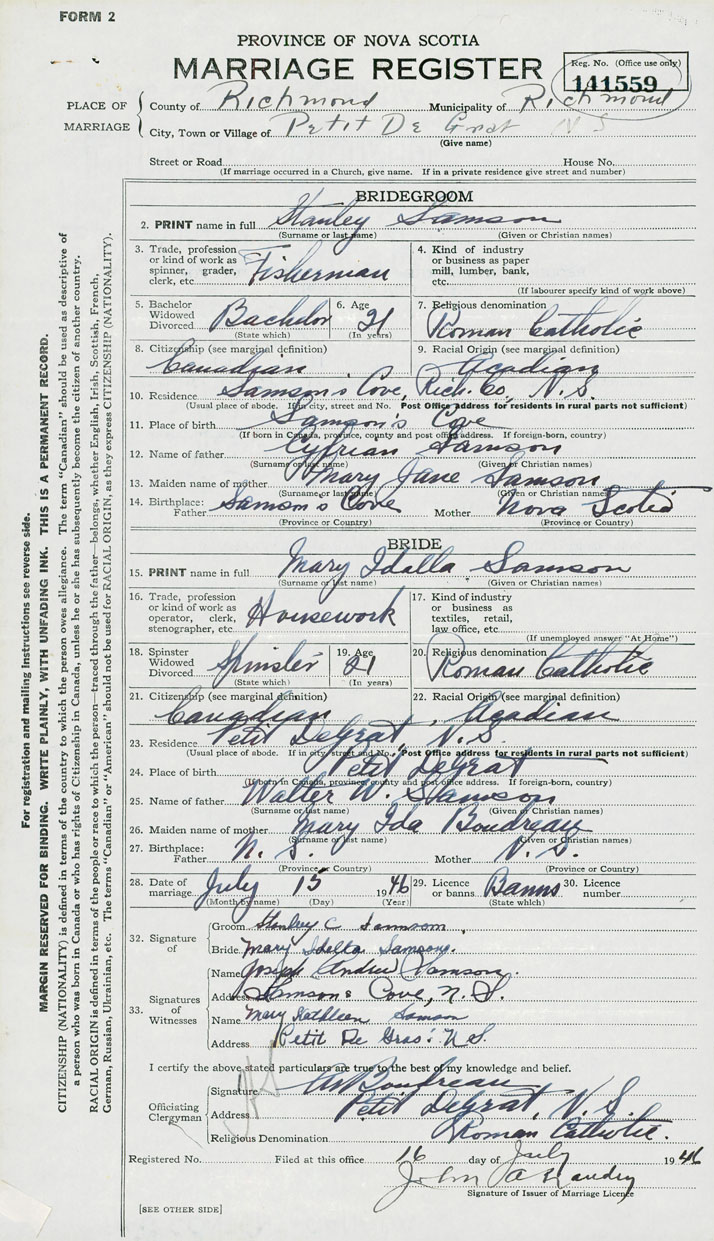 FORM 2
PROVINCE OF NOVA SCOTIA
MARRIAGE REGISTER
Reg. No. (Office use only)
141559
PLACE OF MARRIAGE
County of Richmond Municipality of Richmond
City, Town or Village of Petit De Grat N S
(Give name)
Street or Road House No.
(If marriage occurred in a Church, give name. If in a private residence give street and number)
BRIDEGROOM
2. PRINT name in full Stanley Samson
(Surname or last name) (Given or Christian names)
3. Trade, profession or kind of work as spinner, grader, clerk, etc. Fisherman
4. Kind of industry or business as paper mill, lumber, bank, etc.
(If labourer specify kind of work above)
5. Bachelor Widowed Divorced Bachelor (State which)
6. Age 21 (In years)
7. Religious denomination Roman Catholic
8. Citizenship (see marginal definition) Canadian
9. Racial Origin (see marginal definition) Acadian
10. Residence Samson's Cove, Rich. Co, N.S.
(Usual place of abode. If in city, street and No. Post Office address for residents in rural parts not sufficient)
11. Place of birth Samson's Cove
(If born in Canada, province, county and post office address. If foreign-born, country)
12. Name of father Cyprian Samson
(Surname or last name) (Given or Christian names)
13. Maiden name of mother Mary Jane Samson
(Surname or last name) (Given or Christian names)
14. Birthplace: Father Samson's Cove Mother Nova Scotia
(Province or Country) (Province or Country)
BRIDE
15. PRINT name in full Mary Idalla Samson
(Surname or last name) (Given or Christian names)
16. Trade, profession or kind of work as operator, clerk, stenographer, etc. Housework
17. Kind of industry or business as textiles, retail, law office, etc.
(If unemployed answer "At Home")
18. Spinster Widowed Divorced Spinster (State which)
19. Age 21 (In years)
20. Religious denomination Roman Catholic
21. Citizenship (see marginal definition) Canadian
22. Racial Origin (see marginal definition) Acadian
23. Residence Petit DeGrat, N.S.
(Usual place of abode. If in city, street and No. Post Office address for residents in rural parts not sufficient)
24. Place of birth Petit DeGrat
(If born in Canada, province, county and post office address. If foreign-born, country)
25. Name of father Walter W. Samson
(Surname or last name) (Given or Christian names)
26. Maiden name of mother Mary Ida Boudreau
(Surname or last name) (Given or Christian names)
27. Birthplace: Father N. S. Mother N. S.
(Province or Country) (Province or Country)
28. Date of marriage July 15 1946
(Month by name) (Day) (Year)
29. Licence or banns Banns (State which)
30. Licence number
32. Signature of
Groom Stanley C Samson
Bride Mary Idalla Samson.
33. Signatures of Witnesses
Name Joseph Andrew Samson.
Address Samsons Cove, N.S.
Name Mary Kathleen Samson
Address Petit De Gras: N.S.
I certify the above stated particulars are true to the best of my knowledge and belief.
Officiating Clergyman
Signature Boudreau
Address Petit DeGrat, N.S.
Religious Denomination Roman Catholic.
Registered No. Filed at this office 16 day of July 1946
John A
Signature of Issuer of Marriage Licence
[SEE OTHER SIDE]
For registration and mailing instructions see reverse side.
MARGIN RESERVED FOR BINDING. WRITE PLAINLY, WITH UNFADING INK. THIS IS A PERMANENT RECORD.
CITIZENSHIP (NATIONALITY) is defined in terms of the country to which the person owes allegiance. The term "Canadian" should be used as descriptive of
a person who was born in Canada or who has rights of Citizenship in Canada, unless he or she has subsequently become the citizen of another country.
RACIAL ORIGIN is defined in terms of the people or race to which the person—traced through the father—belongs, whether English, Irish, Scottish, French,
German, Russian, Ukrainian, etc. The terms "Canadian" or "American" should not be used for RACIAL ORIGIN, as they express CITIZENSHIP (NATIONALITY).